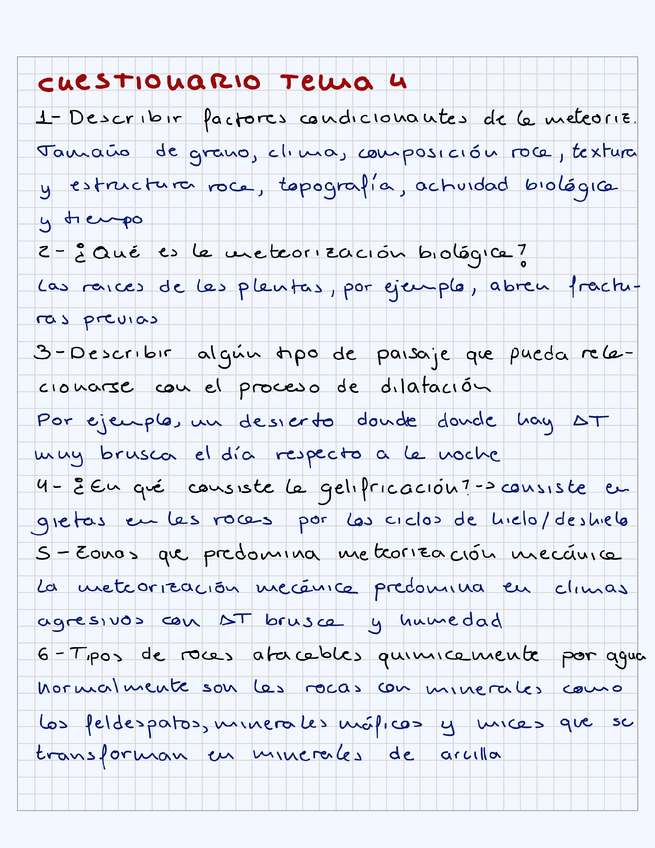 CUESTIONARIO Tema 4
1- Describir factores condicionantes de la meteoriz.
Tamaño de grano, clima, composición roca, textura
y estructura roca, topografía, actividad biológica
y tiempo
2- ¿Qué es la meteorización biológica?
Las raices de las plantas, por ejemplo, abren fractu-
ras previas
3-Describir algún tipo de paisaje que pueda rela-
cionarse con el proceso de dilatación
Por ejemplo, un desierto donde donde hay ΔT
muy brusca el día respecto a la noche
4- ¿En qué consiste la gelifricación?-> consiste en
grietas en las rocas por los ciclos de hielo/deshielo
5-Zonas que predomina meteorización mecánica
La meteorización mecánica predomina en climas
agresivos con ΔT brusca y humedad
6-Tipos de rocas atacables quimicamente por agua
normalmente son las rocas con minerales como
los feldespatos, minerales máficos y micas que se
transforman en minerales de arcilla